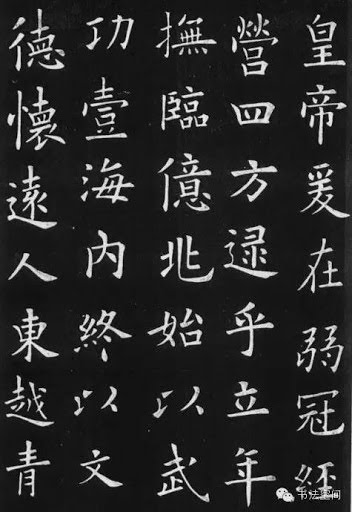 皇帝爰在弱冠經
營四方逯乎立年
撫臨億兆始以武
功壹海内終以文
德懷遠人東越青
书法空间